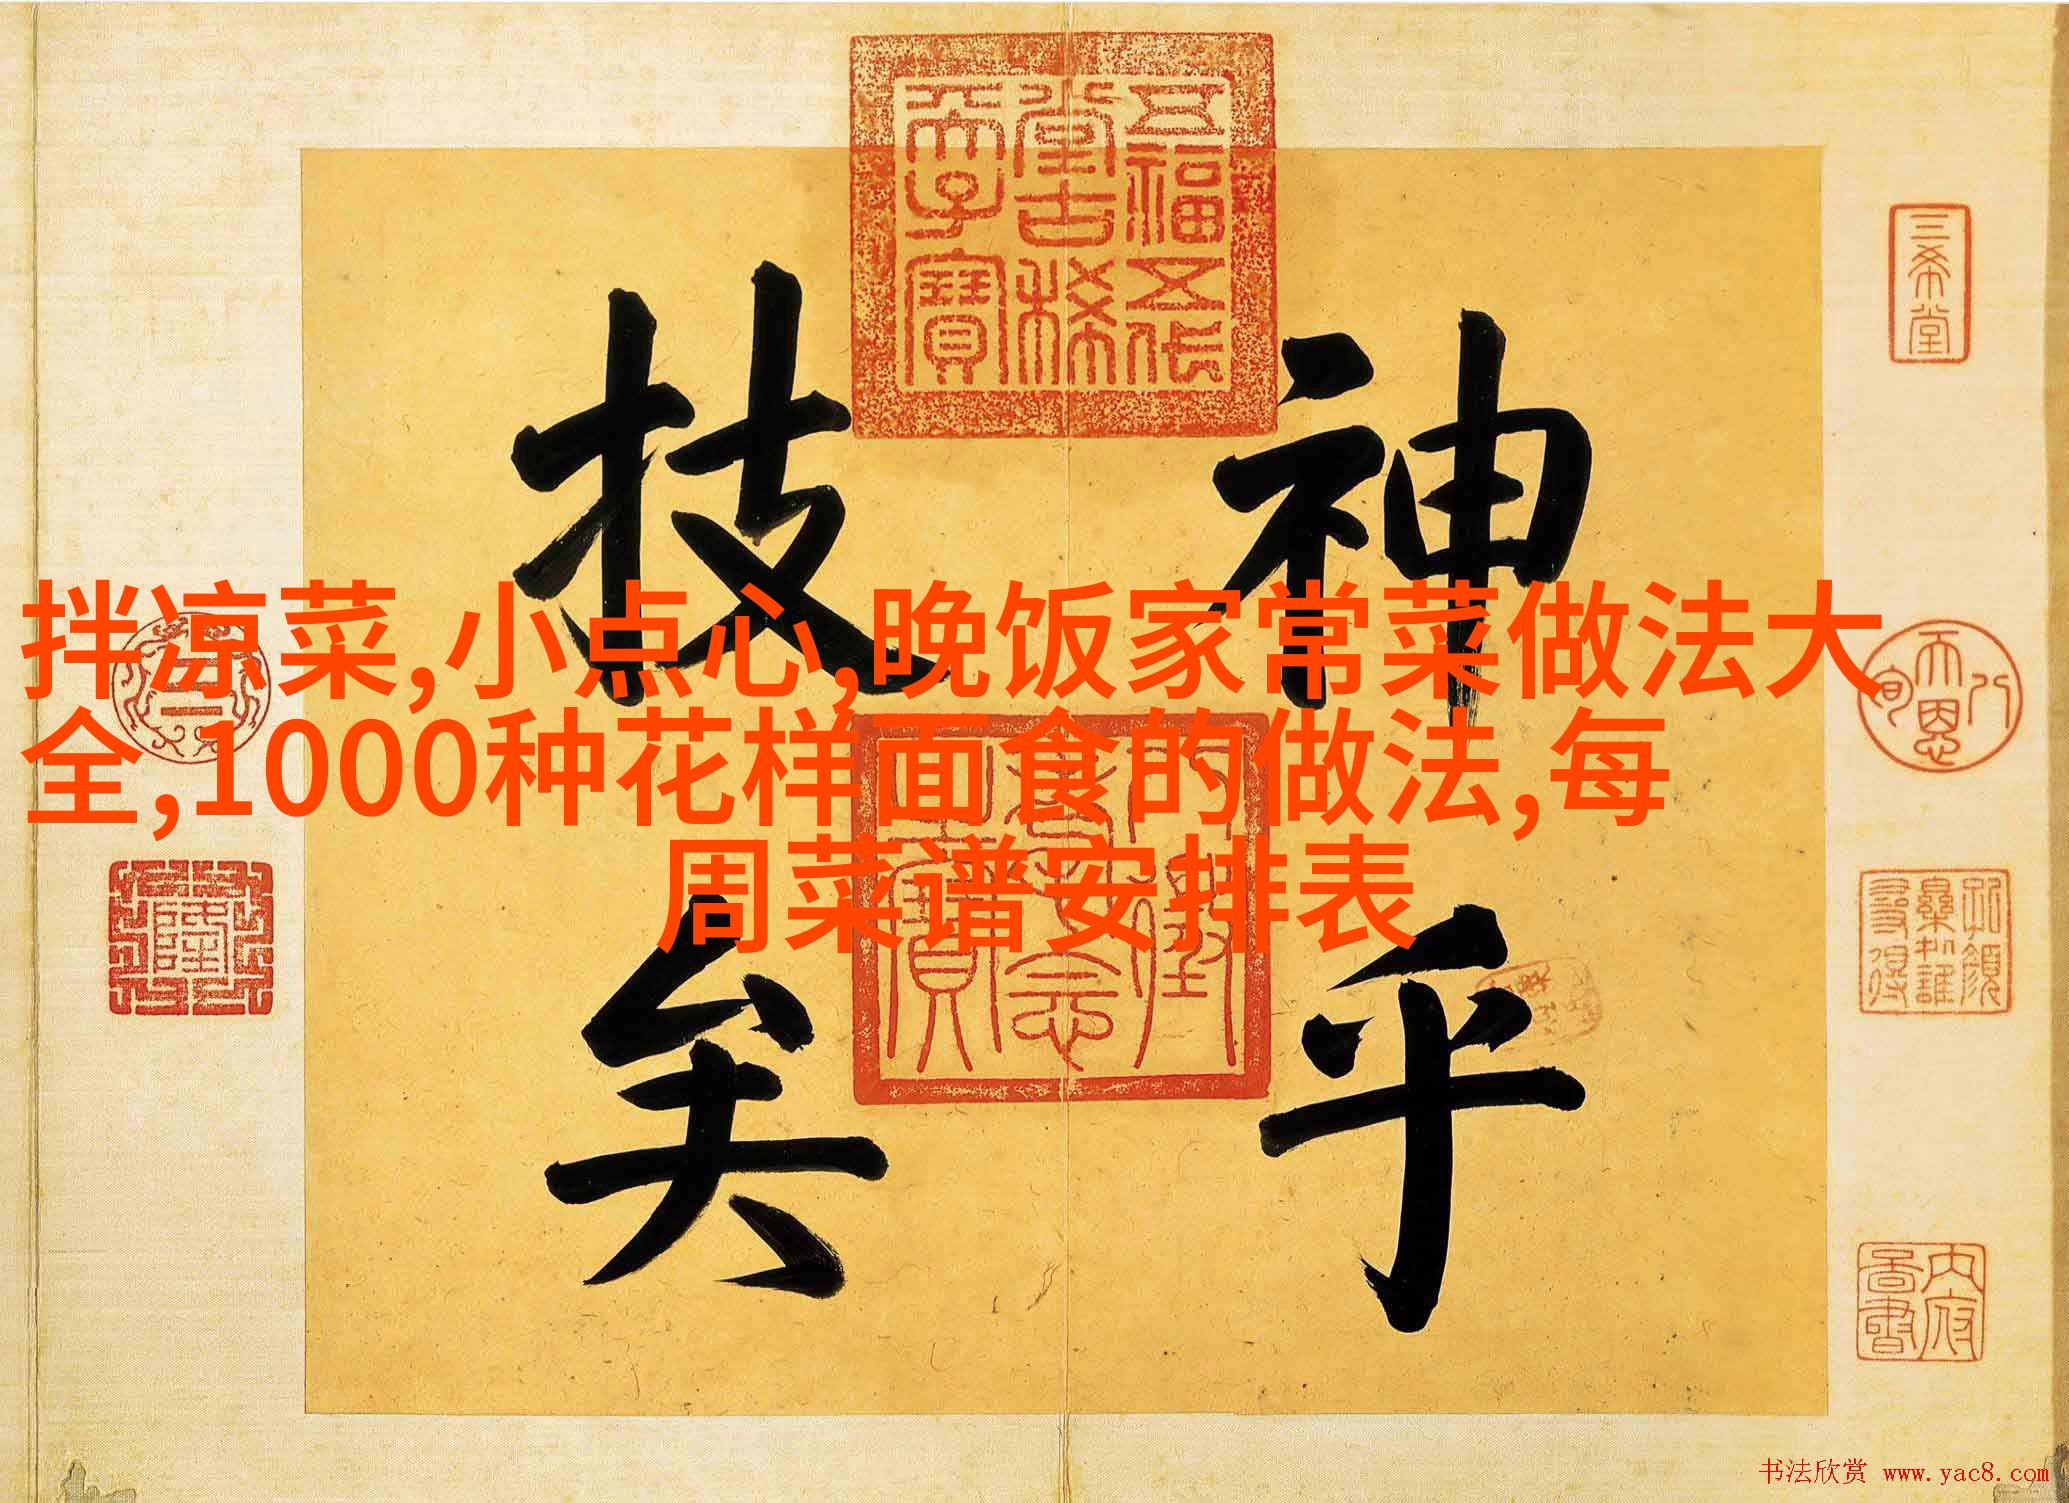 拌凉菜,小点心,晚饭家常菜做法大
全,1000种花样面食的做法,每
周菜谱安排表
神乎
技矣
五福五代
堂古稀
天子寶
三希堂
八
天恩
旬
内府
书法欣赏 www.yac8.com